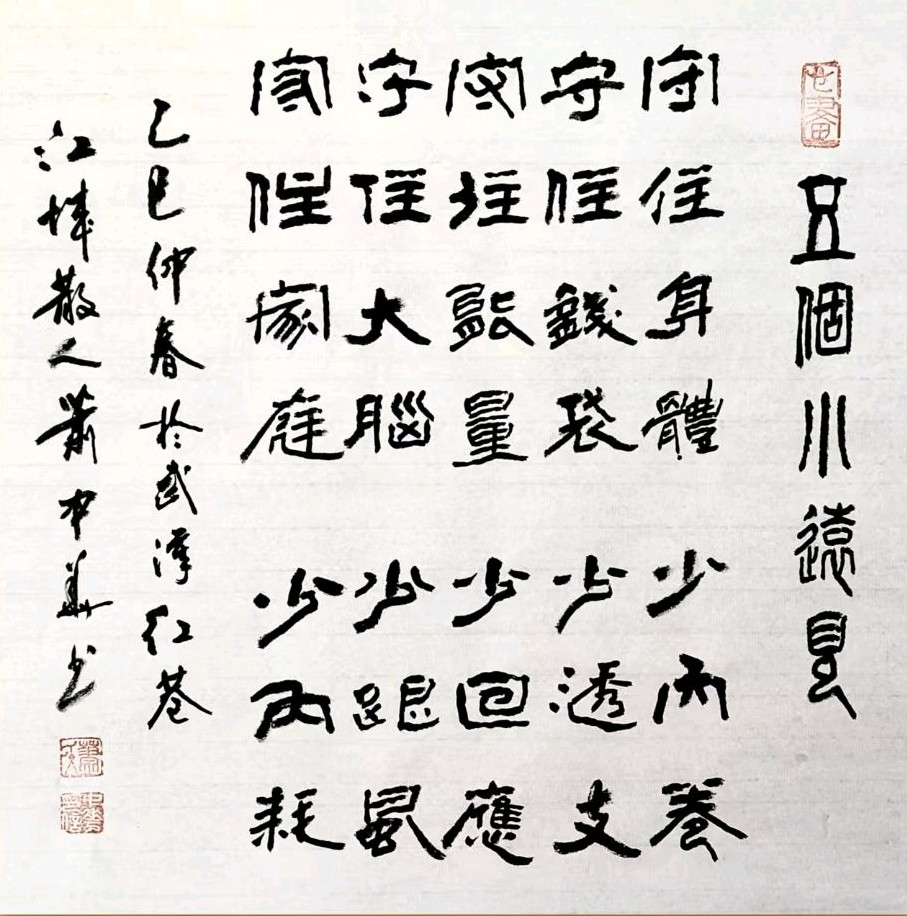 五個小遠見
守住身體 少內卷
守住錢袋 少透支
守住能量 少回應
守住大腦 少跟風
守住家庭 少內耗
乙巳仲春於武漢紅巷
江城散人蕭中華书